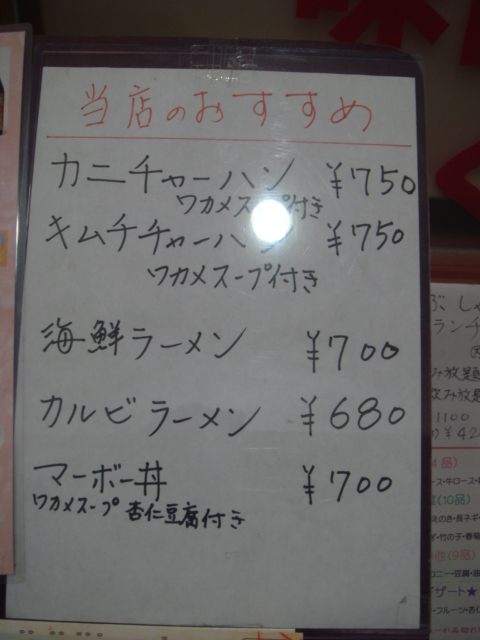 当店のおすすめ
カニチャーハン ¥750
ワカメスープ付き
キムチチャーハン ¥750
ワカメスープ付き
海鮮ラーメン ¥700
カルビラーメン ¥680
マーボー丼 ¥700
ワカメスープ 杏仁豆腐付き
ぶしゃ
ランチ
み放題
飲み放題
1100
¥42
品)
(10品)
(9品)
デザート★